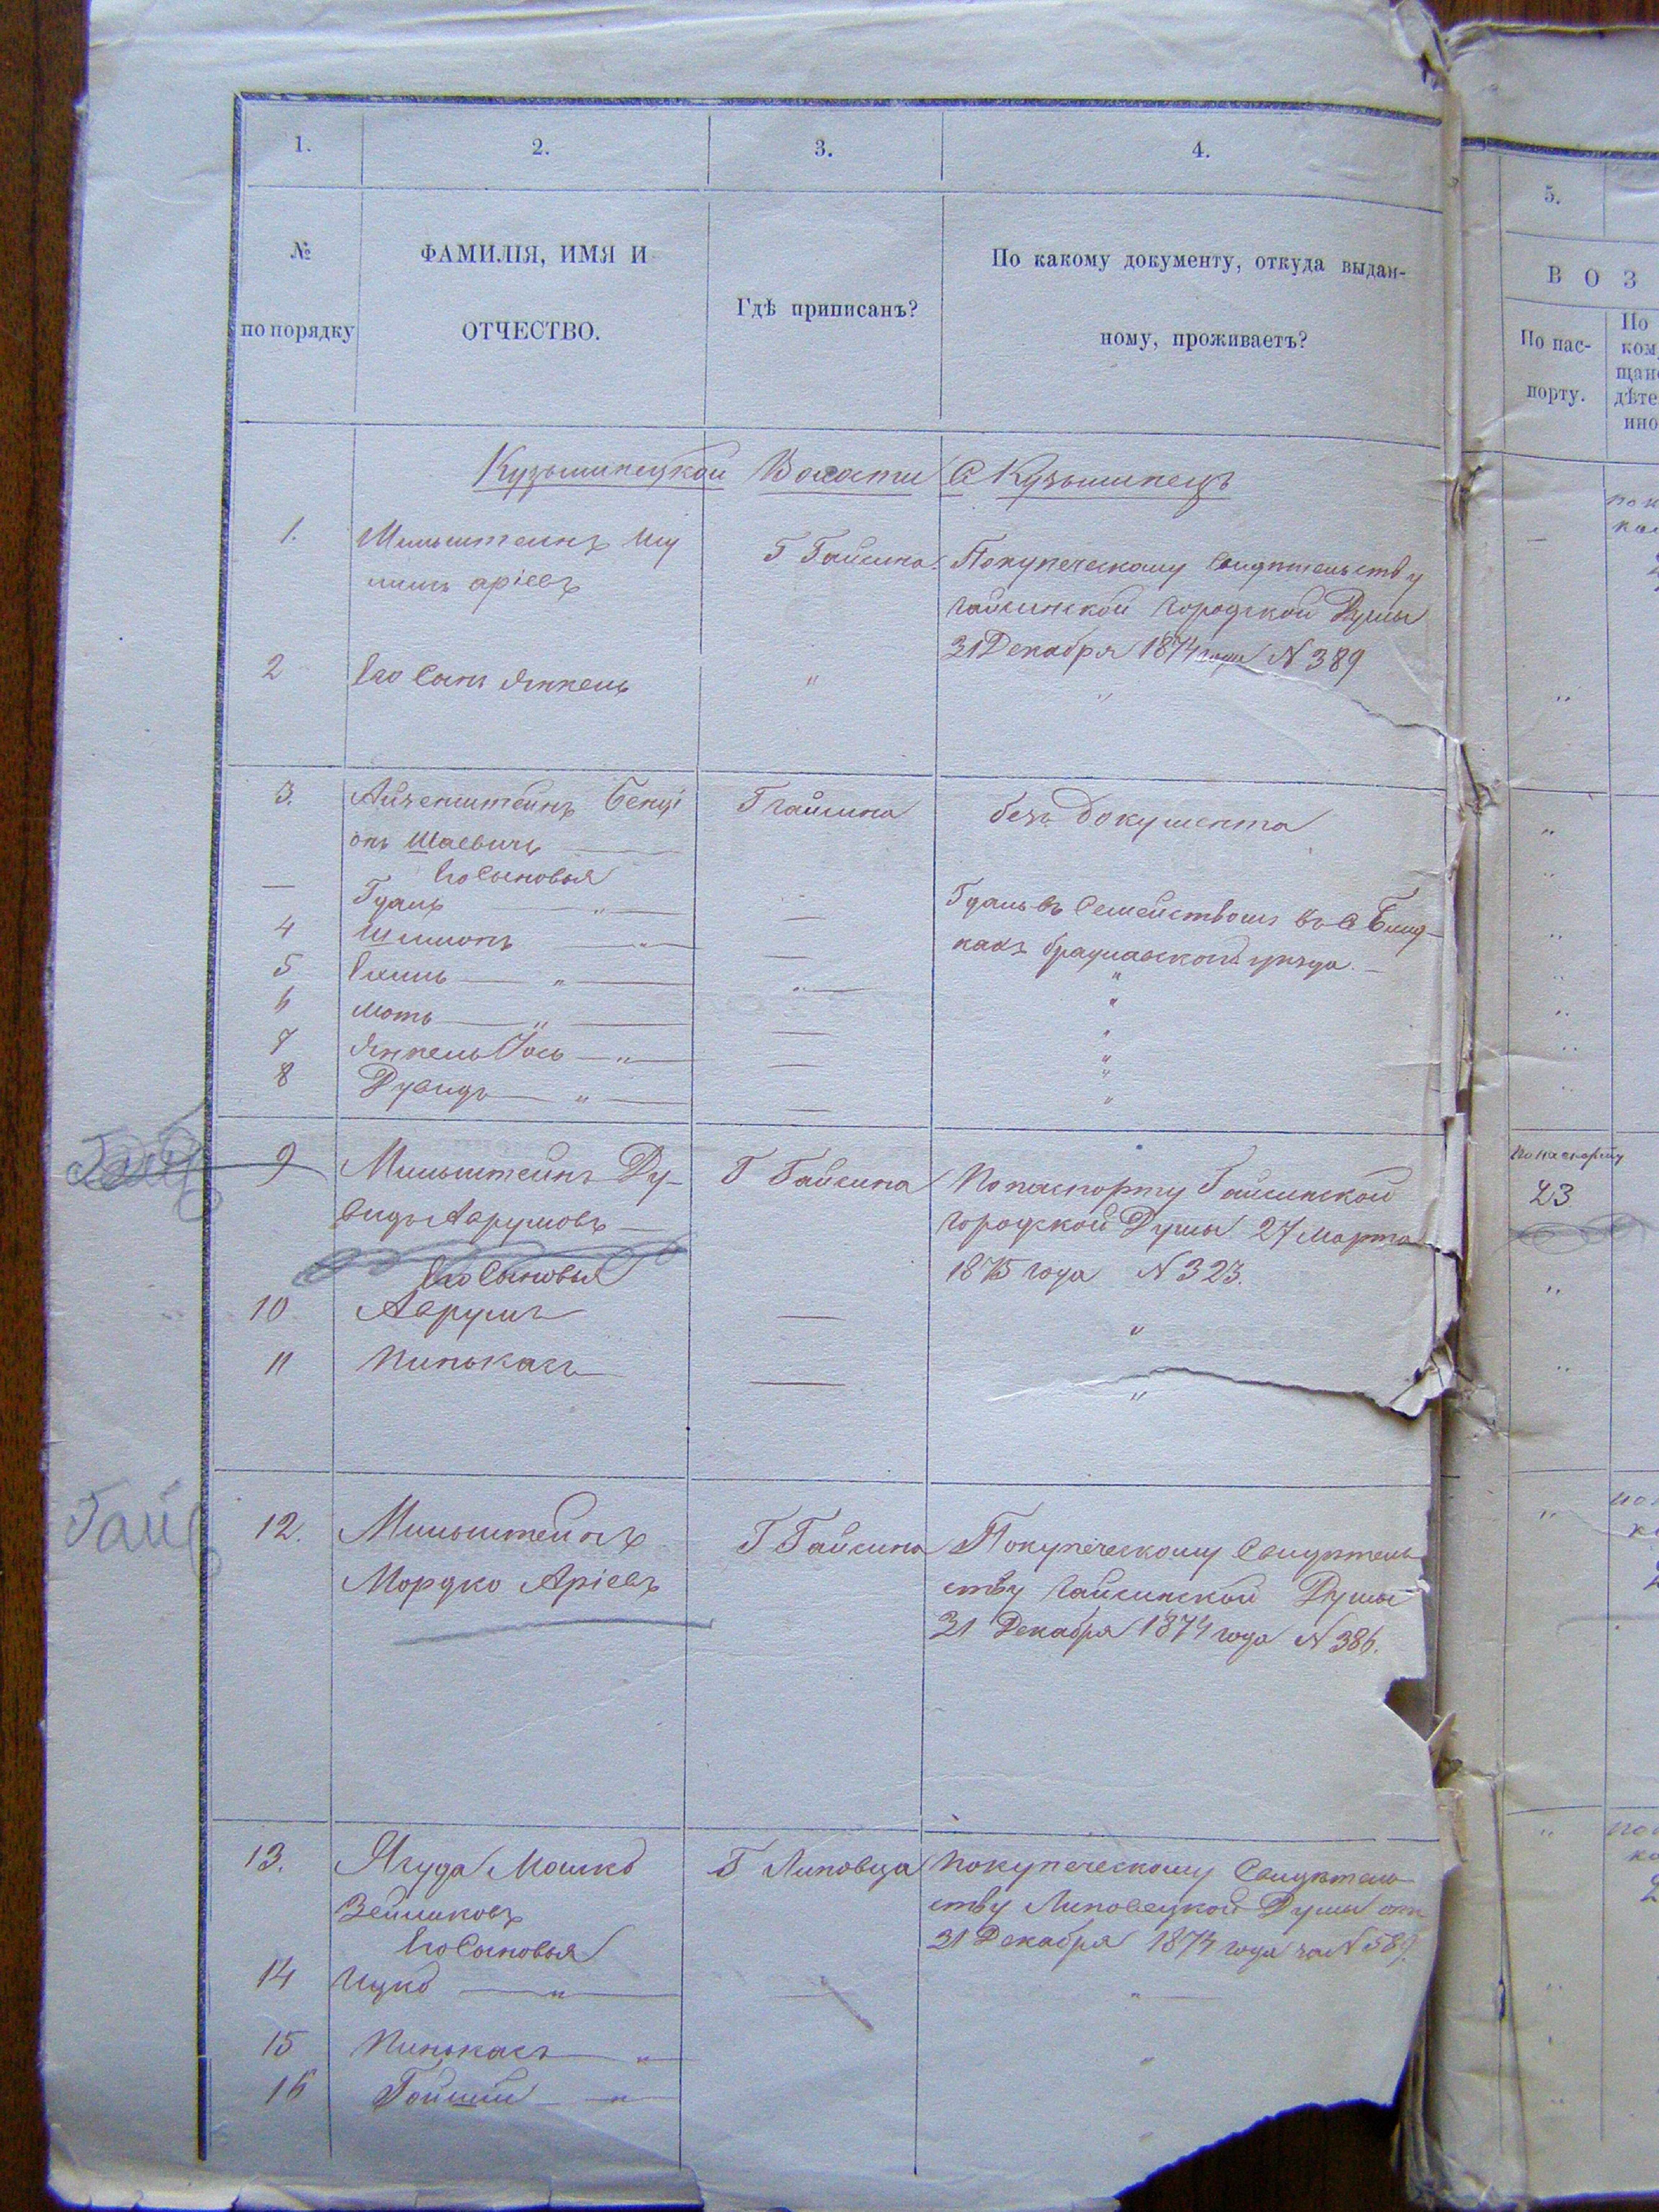 1.
2.
3.
4.
№
по порядку
ФАМИЛІЯ, ИМЯ И
ОТЧЕСТВО.
Гдѣ приписанъ?
По какому документу, откуда выдан-
ному, проживаетъ?
Кузьминецкой Волости С Кузьминецъ
1.
Мильштейнъ Шу
лимъ аріевъ
Г Гайсина
Покупеческому свидѣтельству
гайсинской городской Думы
31 Декабря 1874 года N 389
2
Его Сынъ Янкель
"
"
3.
Айзенштейнъ Бенці
онъ Шаевичъ
Г гайсина
безъ Документа
Его Сыновья
— Гдаль — " —
Гдаль съ Семействомъ въ С
кахъ брацлавского уѣзда. —
4
Шимонъ — " —
5
— " —
"
6
Мотъ — " —
"
7
Янкель Іось — " —
"
8
Дувидъ — " —
"
9
Мильштейнъ Ду-
видъ Аврумовъ —
Г Гайсина
Попаспорту Гайсинской
городской Думы 27 Марта
1875 года N 323.
Его Сыновья
10
Аврумъ
—
"
11
Пинькасъ
—
"
Гайс
12.
Мильштейнъ
Мордко Аріевъ
Г Гайсина
Покупеческому Свидѣтель
ству гайсинской Думы
31 Декабря 1874 года N 386.
13.
Ягуда Мошко
Зейликовъ
Г Липовца
Покупеческому Свидѣтель
ству Липовецкой Думы отъ
31 Декабря 1874 года за N 589.
Его Сыновья
14
Ицко — " —
—
" —
15
Пинькасъ — "
"
16
— " —
5.
В О З
По пас-
порту.
По
ком
щан
дѣте
ино
По паспорту
23